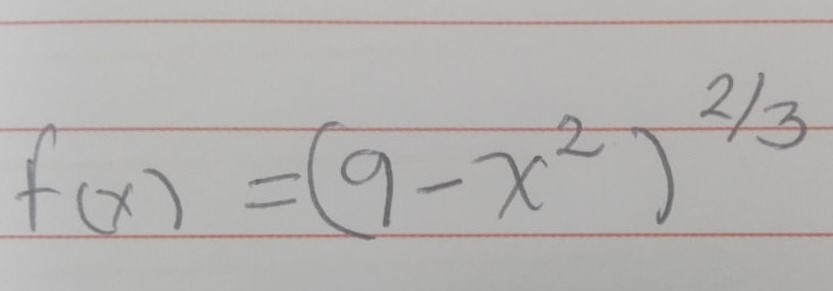 f(x) = (9 - x²)^2/3